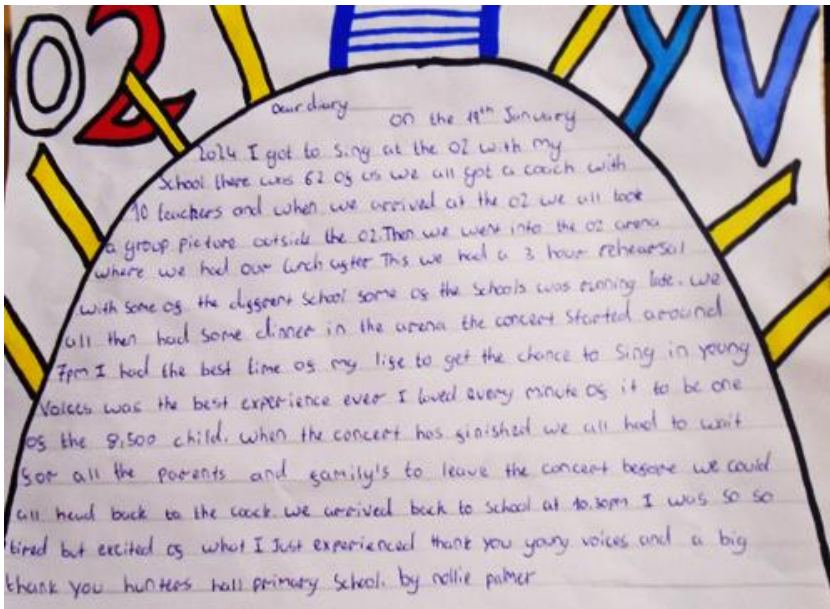 O2 YV
Dear diary
on the 19th January
2024 I got to sing at the O2 with my
School there was 62 of us we all got a coach with
10 teachers and when we arrived at the O2 we all took
a group picture outside the O2. Then we went into the O2 arena
where we had our lunch after This we had a 3 hour rehearsal
with some of the different school some of the schools was running late. we
all then had some dinner in the arena the concert started around
7pm I had the best time of my life to get the chance to sing in young
Voices was the best experience ever I loved every minute of it to be one
of the 8,500 child. when the concert has finished we all had to wait
for all the parents and family's to leave the concert before we could
all head back to the coach we arrived back to school at 10.30pm I was so so
tired but excited of what I Just experienced thank you young voices and a big
thank you hunters hall primary School. by nollie palmer